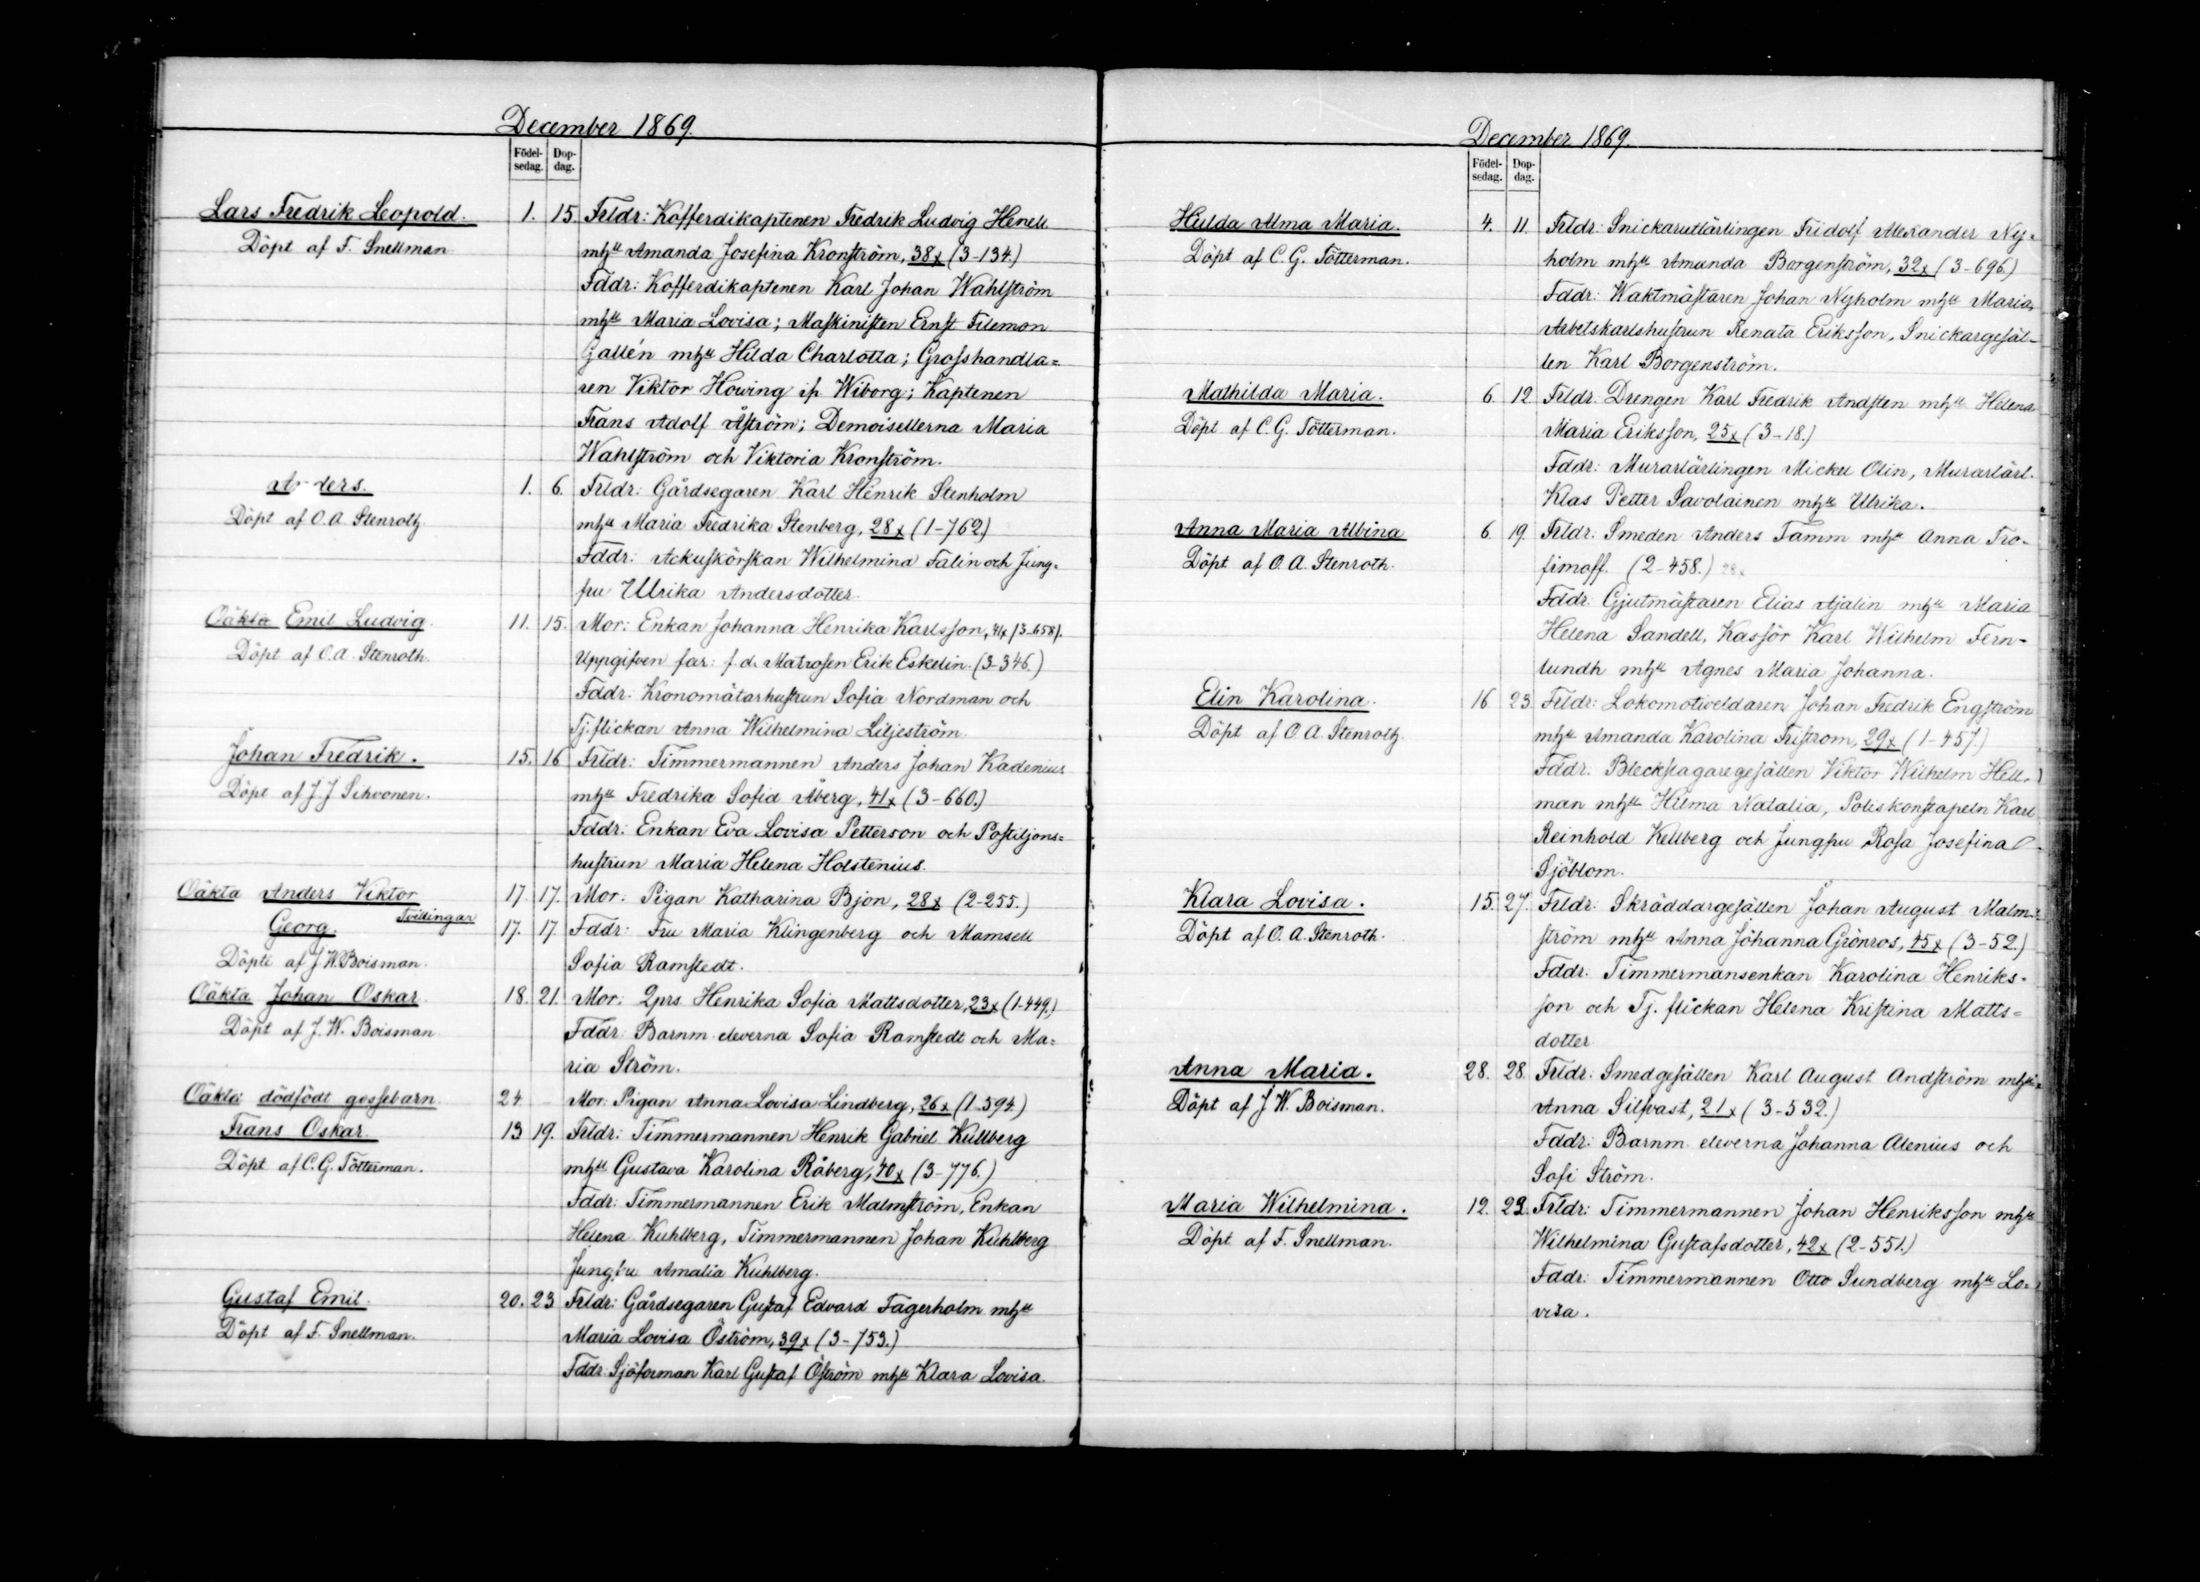 December 1869.
Födel-
sedag.
Dop-
dag.
Lars Fredrik Leopold. 1. 15. Frldr: Kofferdikaptenen Fredrik Ludvig Henell
Döpt af F. Snellman mhu Amanda Josefina Kronström, 38x (3-134.)
Fddr: Kofferdikaptenen Karl Johan Wahlström
mhu Maria Lovisa; Maskinisten Ernst Filemon
Gallén mhu Hilda Charlotta; Grosshandla=
ren Viktor Howing i Wiborg; Kaptenen
Frans Adolf Åström; Demoisellerna Maria
Wahlström och Viktoria Kronström.
Anders. 1. 6. Frldr: Gårdsegaren Karl Henrik Stenholm
Döpt af O. A. Stenroth mhu Maria Fredrika Stenberg, 28x (1-762)
Fddr: Ackuskörskan Wilhelmina Falin och Jung-
fru Ulrika Andersdotter.
Oäkta Emil Ludvig. 11. 15. Mor: Enkan Johanna Henrika Karlsson, 41x (3-658).
Döpt af O. A. Stenroth. Uppgifven far: f. d. Matrosen Erik Eskelin. (3-346.)
Fddr: Kronomätarhustrun Sofia Nordman och
Tj. flickan Anna Wilhelmina Liljeström.
Johan Fredrik. 15. 16 Frldr: Timmermannen Anders Johan Kadenius
Döpt af J. J. Sihvonen. mhu Fredrika Sofia Åberg, 41x (3-660.)
Fddr: Enkan Eva Lovisa Petterson och Postiljons=
hustrun Maria Helena Holstenius.
Oäkta Anders Viktor 17. 17. Mor: Pigan Katharina Bjon, 28x (2-255.)
Tvillingar
Georg. 17. 17 Fddr: Fru Maria Klingenberg och Mamsell
Döpte af J. W. Boisman. Sofia Ramstedt.
Oäkta Johan Oskar 18. 21. Mor: Qprs. Henrika Sofia Mattsdotter, 23x (1-449.)
Döpt af J. W. Boisman Fddr: Barnm. eleverna Sofia Ramstedt och Ma=
ria Ström.
Oäkta dödfödt gossebarn 24. - Mor: Pigan Anna Lovisa Lindberg, 26x (1-594.)
Frans Oskar. 13 19. Frldr: Timmermannen Henrik Gabriel Kullberg
Döpt af C. G. Tötterman. mhu Gustava Karolina Råberg, 40x (3-776.)
Fddr: Timmermannen Erik Malmström, Enkan
Helena Kuhlberg, Timmermannen Johan Kuhlberg
Jungfru Amalia Kuhlberg.
Gustaf Emil. 20. 23 Frldr: Gårdsegaren Gustaf Edvard Fagerholm mhu
Döpt af F. Snellman. Maria Lovisa Öström, 39x (3-753.)
Fddr: Sjöforman Karl Gustaf Öström mhu Klara Lovisa.
December 1869.
Födel-
sedag.
Dop-
dag.
Hilda Alma Maria. 4. 11. Frldr: Snickarutlärlingen Fridolf Alexander Ny-
Döpt af C. G. Tötterman. holm mhu Amanda Borgenström, 32x (3-696.)
Fddr: Waktmästaren Johan Nyholm mhu Maria,
Arbetskarlshustrun Renata Eriksson, Snickargesäl-
len Karl Borgenström.
Mathilda Maria. 6. 12 Frldr: Drengen Karl Fredrik Andsten mhu Helena
Döpt af C. G. Tötterman. Maria Eriksson, 25x (3-18.)
Fddr: Murarlärlingen Mickel Olin, Murarlärl.
Klas Petter Savolainen mhu Ulrika.
Anna Maria Albina 6. 19. Frldr: Smeden Anders Tamm mhu Anna Tro-
Döpt af O. A. Stenroth. fimoff. (2-458.) 28x
Fddr: Gjutmästaren Elias Ajalin mhu Maria
Helena Sandell, Kassör Karl Wilhelm Fern-
lundh mhu Agnes Maria Johanna.
Elin Karolina. 16 23. Frldr: Lokomotiveldaren Johan Fredrik Engström
Döpt af O. A. Stenroth. mhu Amanda Karolina Friström, 29x (1-457.)
Fddr: Bleckslagaregesällen Viktor Wilhelm Hell-
man mhu Hilma Natalia, Poliskonstapeln Karl
Reinhold Kellberg och Jungfru Rosa Josefina
Sjöblom.
Klara Lovisa. 15. 27. Frldr: Skräddargesällen Johan August Malm-
Döpt af O. A. Stenroth. ström mhu Anna Johanna Grönros, 45x (3-52.)
Fddr: Timmermansenkan Karolina Henriks-
son och Tj. flickan Helena Kristina Matts=
dotter
Anna Maria. 28. 28. Frldr: Smedgesällen Karl August Andström mhu
Döpt af J. W. Boisman. Anna Silfvast, 21x (3-532.)
Fddr: Barnm. eleverna Johanna Alenius och
Sofi Ström.
Maria Wilhelmina. 12. 22. Frldr: Timmermannen Johan Henriksson mhu
Döpt af F. Snellman. Wilhelmina Gustafsdotter, 42x (2-551.)
Fddr: Timmermannen Otto Sundberg mhu Lo-
visa.